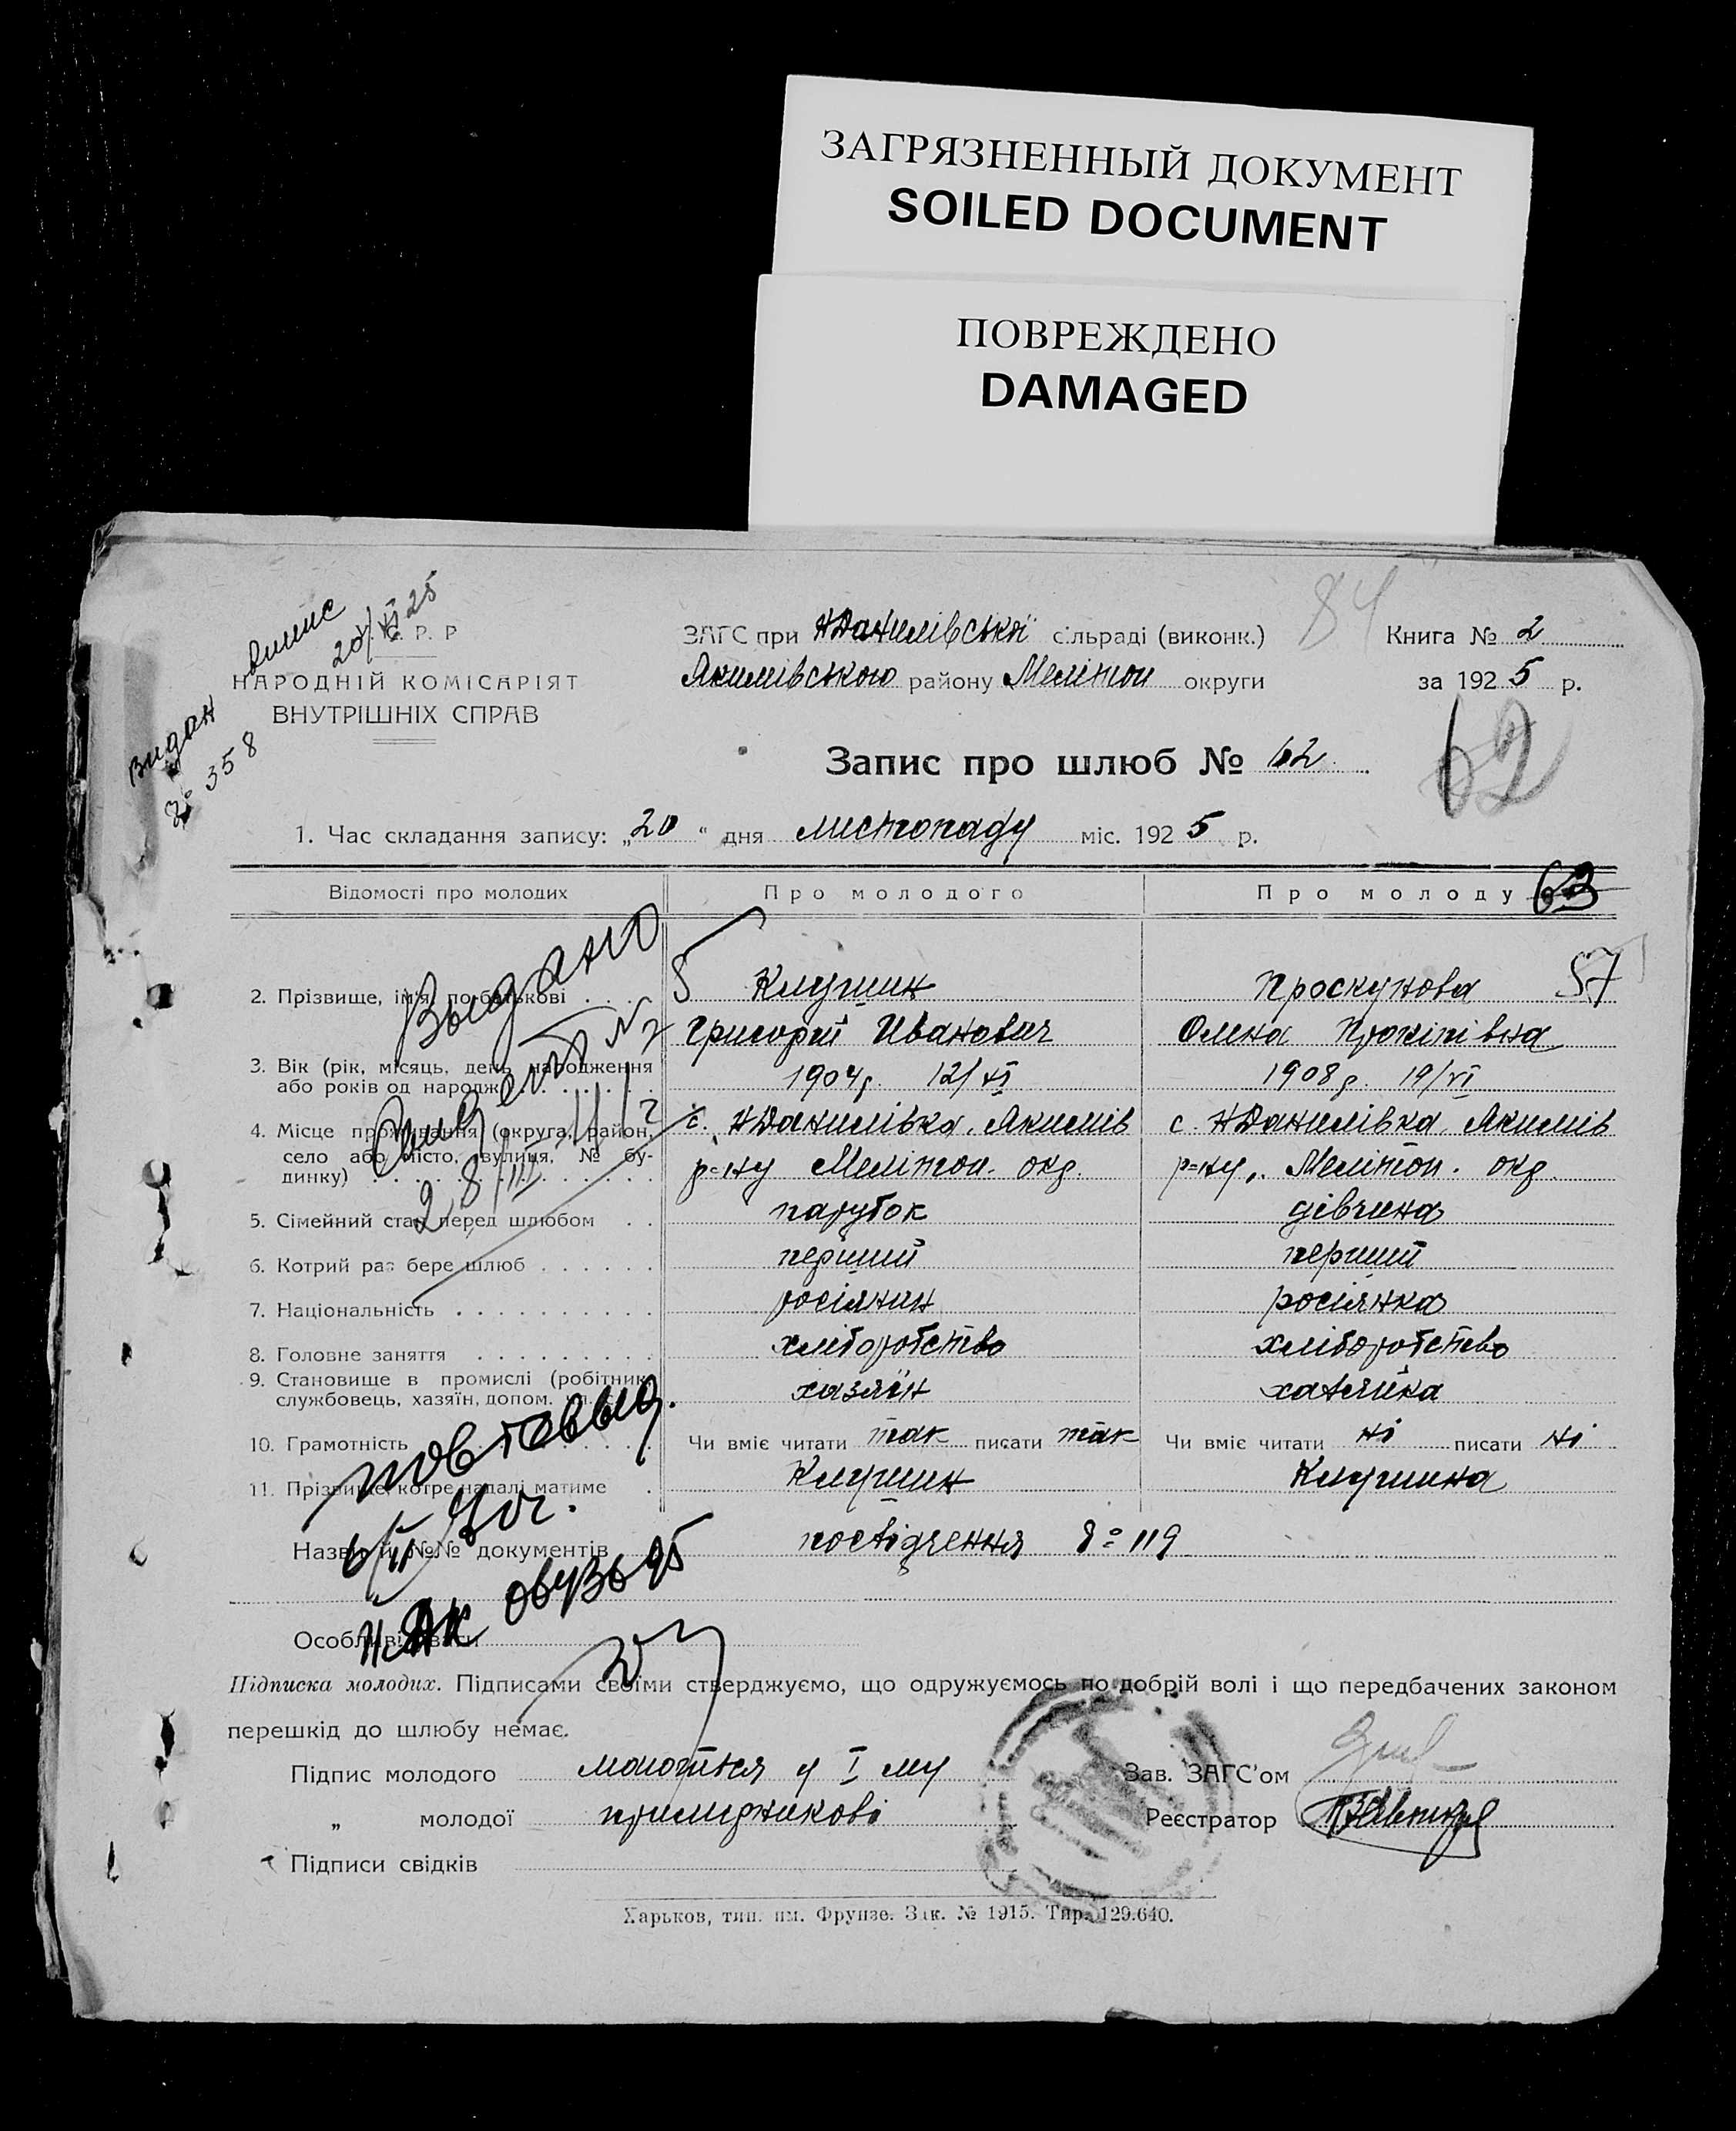 ЗАГРЯЗНЕННЫЙ ДОКУМЕНТ
SOILED DOCUMENT
ПОВРЕЖДЕНО
DAMAGED
видан випис
20/XI 25
№ 358
С. Р. Р
НАРОДНІЙ КОМІСАРІЯТ
ВНУТРІШНІХ СПРАВ
ЗАГС при НДанилівській сільраді (виконк.)
84
Книга № 2
Якимівського району Мелітоп округи
за 1925 р.
Запис про шлюб № 62
62
1. Час складання запису: „20“ дня листопаду міс. 1925 р.
Відомості про молодих
Про молодого
Про молоду
63
57
2. Прізвище, ім'я, по-батькові
Клушин
Григорій Иванович
Проскунова
Олена Прокіпівна
3. Вік (рік, місяць, день народження
або років од народж.
1904 р. 12/XI
1908 р. 19/VI
4. Місце проживання (округа, район,
село або місто, вулиця, № бу-
динку)
с. НДанилівка, Якимів
р=ну Мелітоп. окр.
с. НДанилівка, Якимів
р=ну, Мелітоп. окр.
5. Сімейний стан перед шлюбом
парубок
дівчина
6. Котрий раз бере шлюб
перший
перший
7. Національність
росіянин
росіянка
8. Головне заняття
хліборобство
хліборобство
9. Становище в промислі (робітник,
службовець, хазяїн, допом.
хазяїн
хазяйка
10. Грамотність
Чи вміє читати так писати так
Чи вміє читати ні писати ні
11. Прізвище, котре надалі матиме
Клушин
Клушина
Выдано
28/III
повт. выд.
Назви й №№ документів
посвідчення № 119
Особливі уваги
Підписка молодих. Підписами своїми стверджуємо, що одружуємось по добрій волі і що передбачених законом
перешкід до шлюбу немає.
Підпис молодого
молодої
мається у I му
примірникові
Зав. ЗАГС'ом
Реєстратор
Підписи свідків
Харьков, тип. им. Фрунзе. Зак. № 1915. Тир. 129.640.